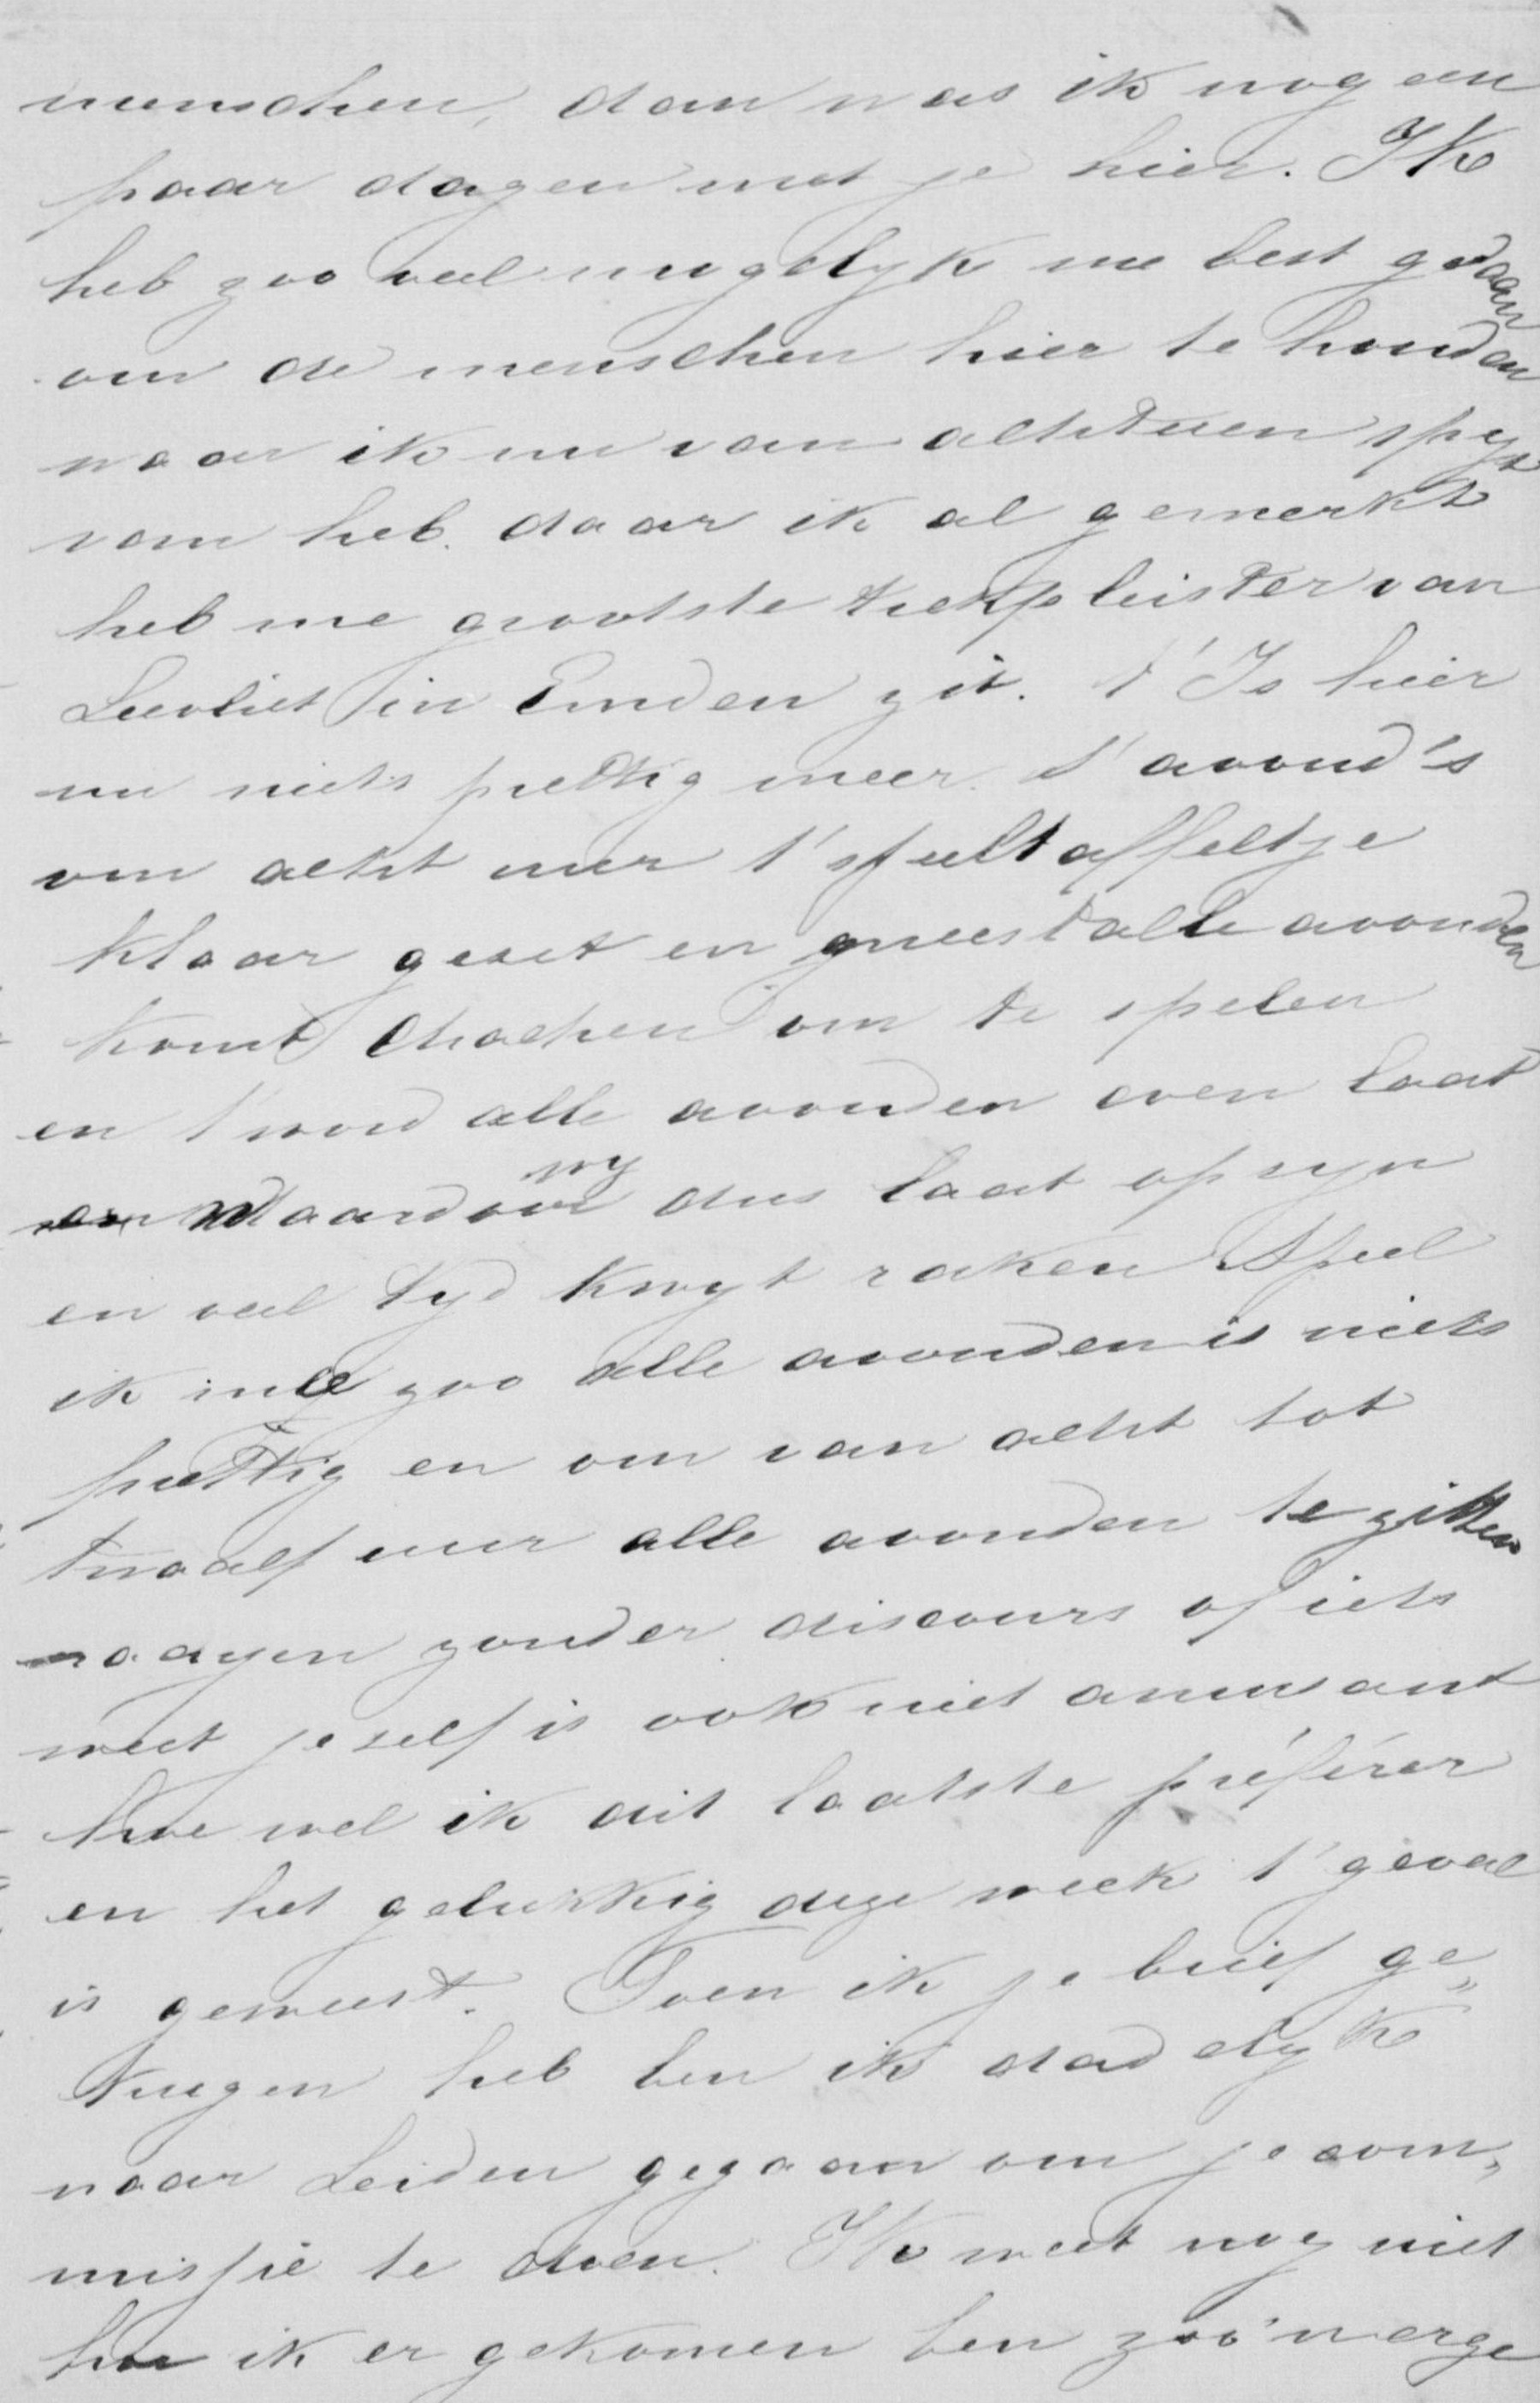 menschen, dan was ik nog een
paar dagen met je hier. Ik
heb zoo veel mogelyk me best gedaan
om de menschen hier te houden
waar ik nu van achteren spyt
van heb. daar ik al gemerkt
heb me grootste trekpleister van
Leevliet in Emden zit. t' Is hier
nu niets prettig meer. s' avond's
om acht uur t' speeltaffeltje
klaar gezet en meest alle avonden
komt om te spelen
en t' word alle avonden even laat
waardoor wy dus laat op zyn
en veel tyd kwyt raken. Speel
ik mee zoo alle avonden is niets
prettig en om van acht tot
twaalf uur alle avonden te zitten
naayen zonder discours of iets
weet je self is ook niet amusant
hoe wel ik dit laatste préférer
en het gelukkig deze week t' geval
is geweest. Toen ik je brief ge„
kregen heb ben ik dadelyk
naar Leiden gegaan om je com„
missie te doen. Ik weet nog niet
hoe ik er gekomen ben zoo'n erge